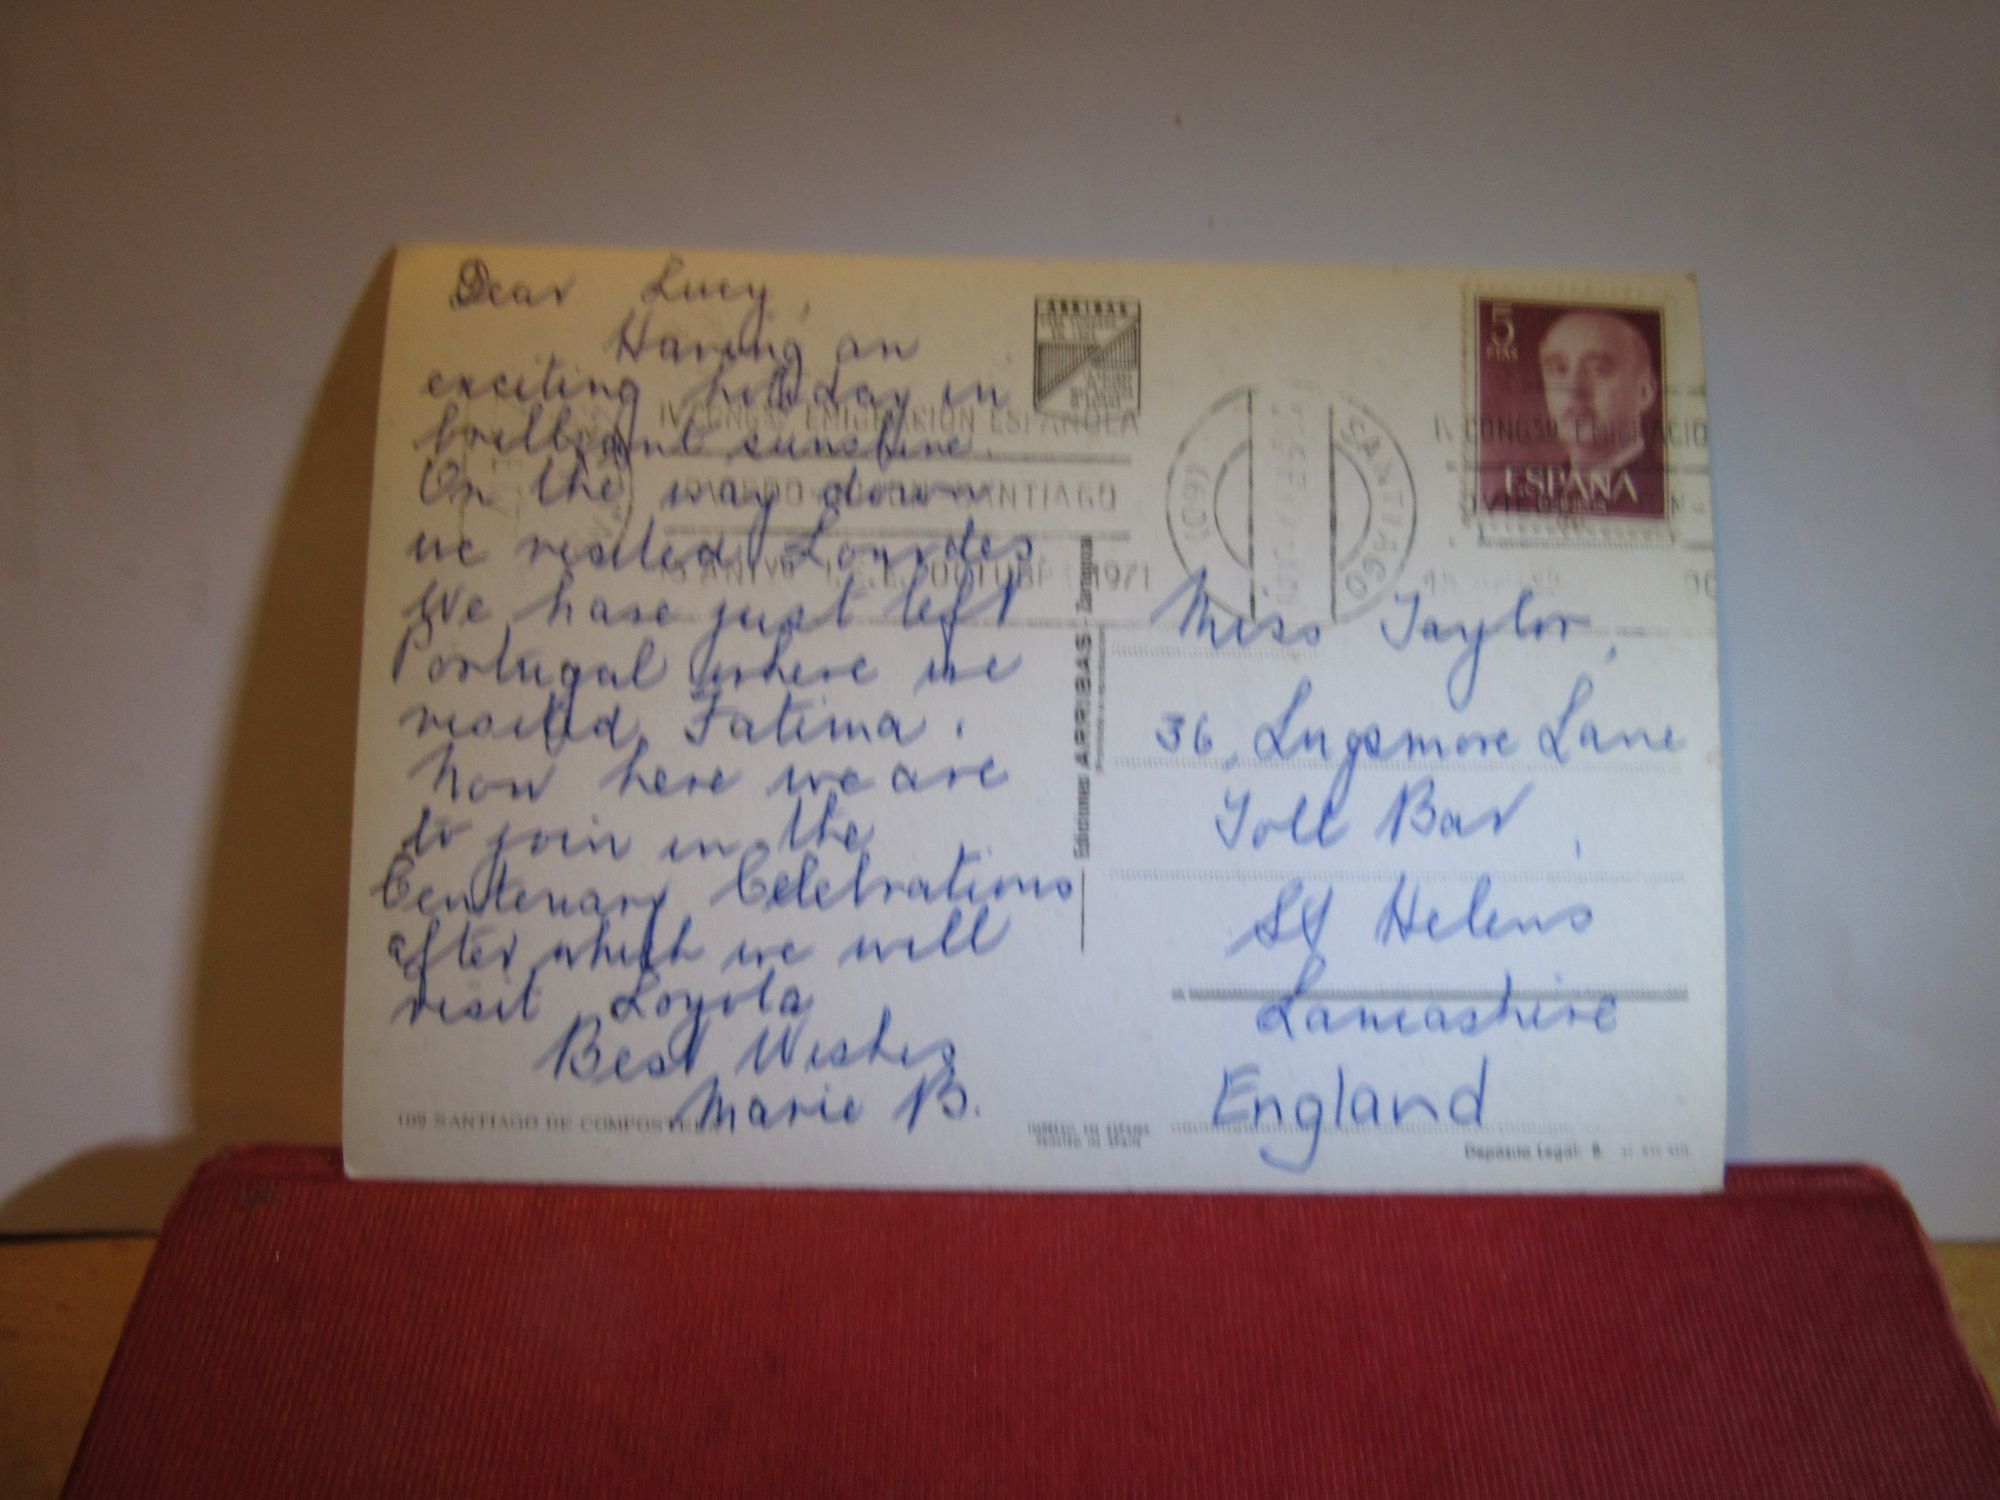 Dear Lucy,
Having an
exciting holiday in
brilliant sunshine.
On the way down
we visited Lourdes
We have just left
Portugal where we
visited Fatima.
Now here we are
to join in the
Centenary Celebrations
after which we will
visit Loyola
Best Wishes
Marie B.
109 SANTIAGO DE COMPOSTELA
ARRIBAS
IV CONGSO EMIGRACION ESPAÑOLA
SANTIAGO
OCTUBRE 1971
Ediciones ARRIBAS - Zaragoza
PRINTED IN SPAIN
SANTIAGO
5
PTAS
ESPAÑA
IV CONGSO EMIGRACIO
Miss Taylor,
36, Lugsmore Lane
Toll Bar,
St Helens
Lancashire
England
Depósito Legal: B.